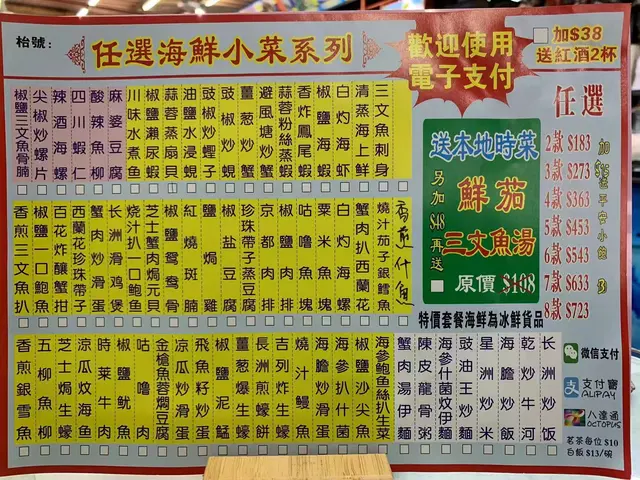 枱號：
任選海鮮小菜系列
歡迎使用
電子支付
加$38
送紅酒2杯
三文魚刺身
清蒸海上鮮
白灼海蝦
椒鹽海蝦
香炸鳳尾蝦
蒜蓉粉絲蒸蝦
避風塘炒蟹
薑葱炒蟹
豉椒炒蜆
豉椒炒蟶子
油鹽水浸蜆
蒜蓉蒸扇貝
椒鹽瀨尿蝦
川味水煮魚
麻婆豆腐
酸辣魚柳
四川蝦仁
辣酒海螺
尖椒炒螺片
椒鹽三文魚骨腩
香煎什魚
燒汁茄子銀鱈魚
蟹肉扒西蘭花
白灼海螺
粟米魚塊
咕嚕魚塊
椒鹽肉排
京都肉排
珍珠帶子蒸豆腐
椒鹽豆腐
鹽焗雞
紅燒斑腩
椒鹽鴛鴦骨
芝士蟹肉焗元貝
燒汁扒一口鮑魚
長洲滑雞煲
蟹肉炒滑蛋
西蘭花珍珠帶子
百花炸釀蟹拑
椒鹽一口鮑魚
香煎三文魚扒
海參鮑魚絲扒生菜
椒鹽沙尖魚
海參扒什菌
海膽炒滑蛋
燒汁鰻魚
吉列炸生蠔
長洲煎蠔餅
薑葱爆生蠔
椒鹽泥鯭
飛魚籽炒蛋
涼瓜炒滑蛋
金槍魚蓉燜豆腐
咕嚕肉
椒鹽魷魚
時菜牛肉
涼瓜炆海魚
芝士焗生蠔
五柳魚柳
香煎銀雪魚
長洲炒飯
乾炒牛河
海膽炒飯
星洲炒米
豉油王炒麵
海參什菌炆伊麵
陳皮龍骨粥
蟹肉湯伊麵
送本地時菜
鮮茄
三文魚湯
另加$48再送
原價 $108
特價套餐海鮮為冰鮮貨品
任選
2款 $183
3款 $273
4款 $363
5款 $453
6款 $543
7款 $633
8款 $723
微信支付
支付寶
ALIPAY
八達通
OCTOPUS
茗茶每位 $10
白飯 $13/碗